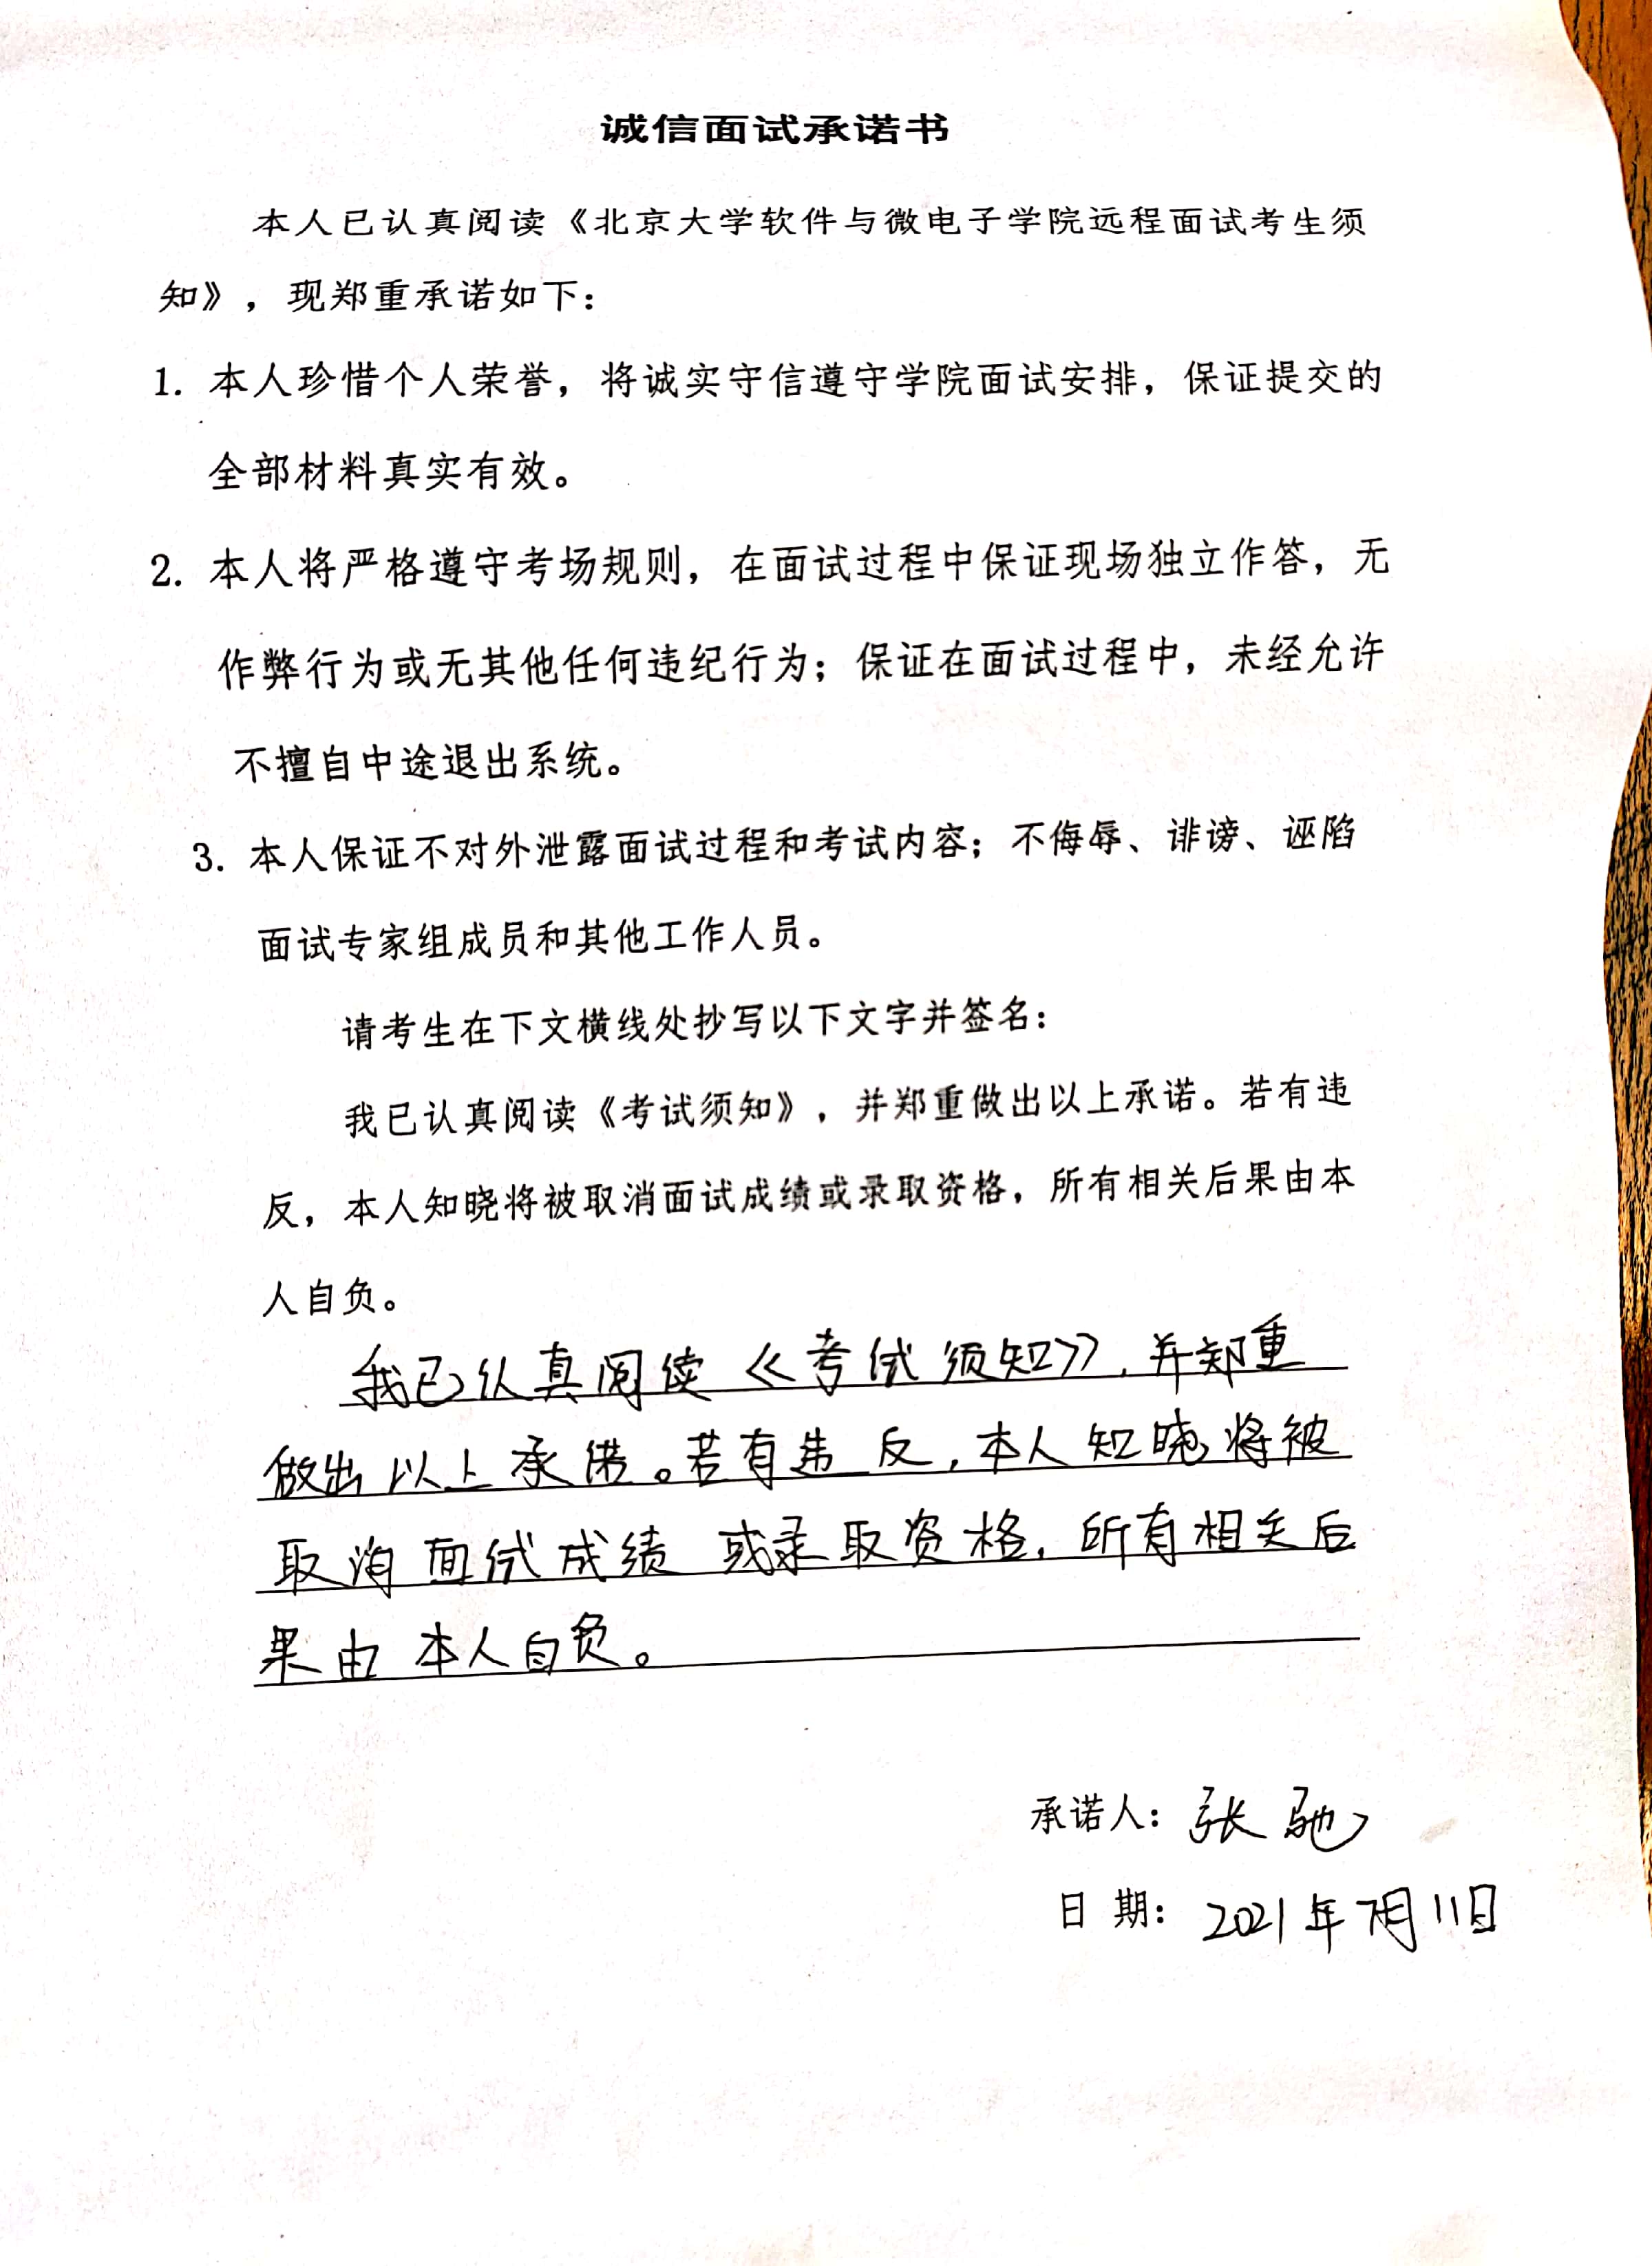 诚信面试承诺书
本人已认真阅读《北京大学软件与微电子学院远程面试考生须
知》，现郑重承诺如下：
1. 本人珍惜个人荣誉，将诚实守信遵守学院面试安排，保证提交的
全部材料真实有效。
2. 本人将严格遵守考场规则，在面试过程中保证现场独立作答，无
作弊行为或无其他任何违纪行为；保证在面试过程中，未经允许
不擅自中途退出系统。
3. 本人保证不对外泄露面试过程和考试内容；不侮辱、诽谤、诬陷
面试专家组成员和其他工作人员。
请考生在下文横线处抄写以下文字并签名：
我已认真阅读《考试须知》，并郑重做出以上承诺。若有违
反，本人知晓将被取消面试成绩或录取资格，所有相关后果由本
人自负。
我已认真阅读《考试须知》，并郑重
做出以上承诺。若有违反，本人知晓将被
取消面试成绩或录取资格，所有相关后
果由本人自负。
承诺人：张驰
日 期：2021年7月11日